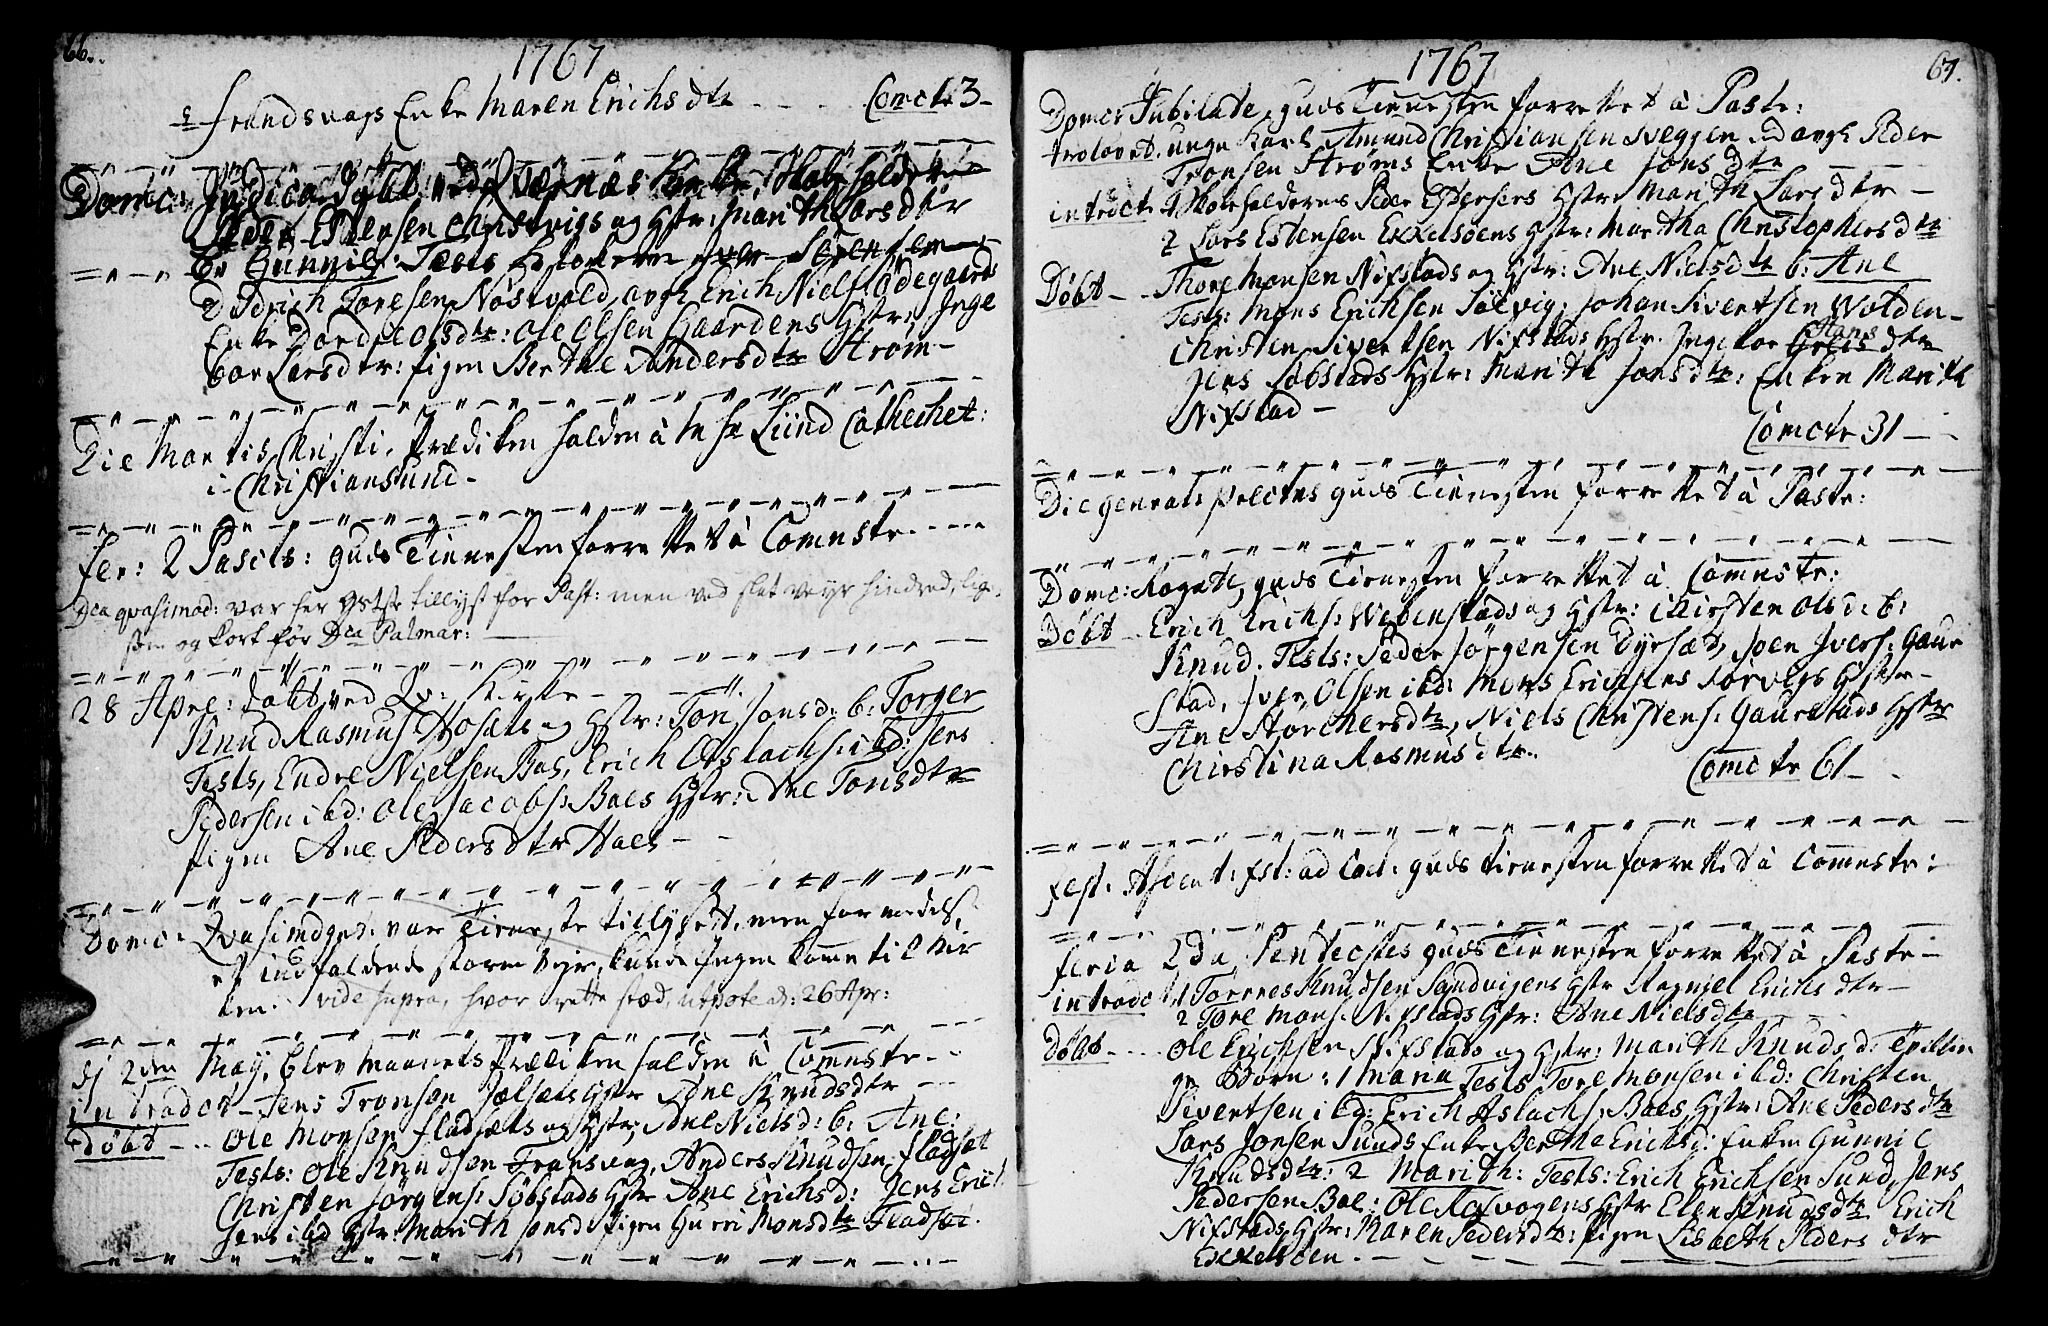 66.
1767
frandsvags Enke Maren Erichs dtr - - - Comcte 3 -
Domc: Judica, døbt ved Qværnæs Kirke, Skoleholder
Peder Estensen Christvigs og Hstr: Marith Lars dtr
b: Gunnil: Tests Sören Sem
Didrich Toresen Nöstvold, avgl: Erich Niels Ödegaards
Enke Dordie Olsdtr: Ole Olsen Gaardens Hstr: Inge
bor Larsdtr: pigen Berthe Andersdtr Ström -
Die Martis Christi, Prædiken holden à Mr Hr Lünd Cathechet:
i Christiansund -
Fer: 2 Pascts: guds Tienesten forrettet à Comnstr. - - -
Dca qvasimod: var her Gstste tillyst for Past: men ved slet veyr hindred, lige
som og kort før Dca Palmar:
28 Apr: døbt ved Qv: Kirke -
Knud Rasmus: Hosæts og Hstr: Ton Jonsd: b: Torger
Tests, Endre Nielsen Bas, Erich Aslachs: ibd: Jens
Pedersen ibd: Ole Jacobs: Baes Hstr: Ane Tonsdtr
pigen Ane Peders dtr Haes -
Domc: Qvasimdgnt: var Tieneste tillyset, men formedelst
et indfaldende storm Veyr, kunde Ingen komme til Kir
ken. vide supra, hvor rette stæd, utpote d: 26 Apr:
dj 2den May, blev Maanets Prædiken holden à Comnstr - -
introdct - Jens Tronsen Jælsets Hstr Ane Knudsdtr -
Døbt - - Ole Monsen Fladsæts og Hstr; Ane Niels d: b: Ane:
Tests: Ole Knudsen Fransvag, Anders Knudsen Fladsæt
Christen Jörgens: Söbstads Hstr Ane Erichs d: Jens Erich
sens ibd Hstr: Marith Jonsd pigen Gurri Monsdtr Fladset.
67.
1767
Domca Jubilate, guds Tienesten forrettet à Pastr:
trolovet. unge Karl Amund Christiansen Sveggen og avgl: Peder
Tronsen Ströms Enke Ane Jons dtr
introdct 1 Skoleholderens Peder Estensens Hstr Marith Lars dtr -
2 Lars Estensen Ekkelsöens Hstr: Martha Christophers dtr
Døbt - - Thore Monsen Nifstads og Hstr: Ane Nielsdtr b: Ane
Tests: Mons Erichsen Sölvig, Johan Sivertsen Wolden -
Christen Sivertsen Nifstads Hstr. Ingebor Hans dtr
Jens Söbstads Hstr: Marith Jonsdtr: Enken Marith
Nifstad -
Comcte 31 -
Die genrals precties guds Tienesten forrettet à Pastr:
Domc: Rogate, guds Tienesten forrettet à Comnstr:
Døbt - Erich Erichs: Webenstads og Hstr: Chirsten Ols d: b:
Knud. Tests: Peder Jörgensen Dyrsæt, Joen Ivers: Gaur
stad, Iver Olsen ibd: Mons Erichsens Sörvigs Hstr -
Ane Störchersdtr, Niels Christens: Gaurstads Hstr
Chirstina Rasmusdtr.
Comcte 61 -
Fest: Ascent: fst: ad Coel: guds tienesten forrettet à Comnstr:
Feria 2da Pentecstes guds Tienesten forrettet à Pastr -
introdct 1 Torres Knudsen Sandvigens Hstr Ragnjel Erichs dtr -
2 Tore Mons: Nifstads Hstr: Ane Nielsdtr
Døbt - - - Ole Erichsen Nifstads og Hstr: Marith Knuds d: Tvillin
ge Børn: 1 Mana Tests Tore Monsen ibd: Christen
Sivertsen ibd: Erich Aslachs: Baes Hstr: Ane Peders dtr
Lars Jonsen Sunds Enke Berthe Erichsd: Enken Gunnil
Knudsdtr: 2 Marith: Tests: Erich Erichsen Sund, Jens
Pedersen Bae: Ole Kasvogens Hstr Elen Knudsdtr Erich
Nifstads Hstr: Karen Pedersdtr: pigen Lisbeth Peders dtr
Ekkelsöen. -